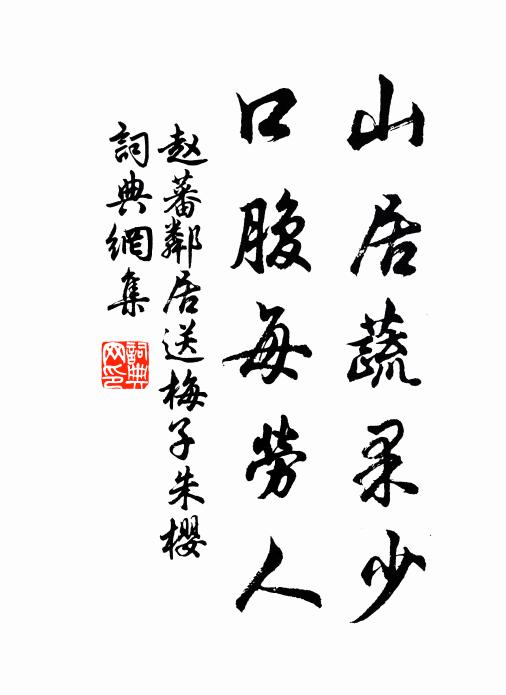 山居蔬果少
口腹每勞人
赵蕃鄰居送梅子朱櫻
詞典網集
詞典网印